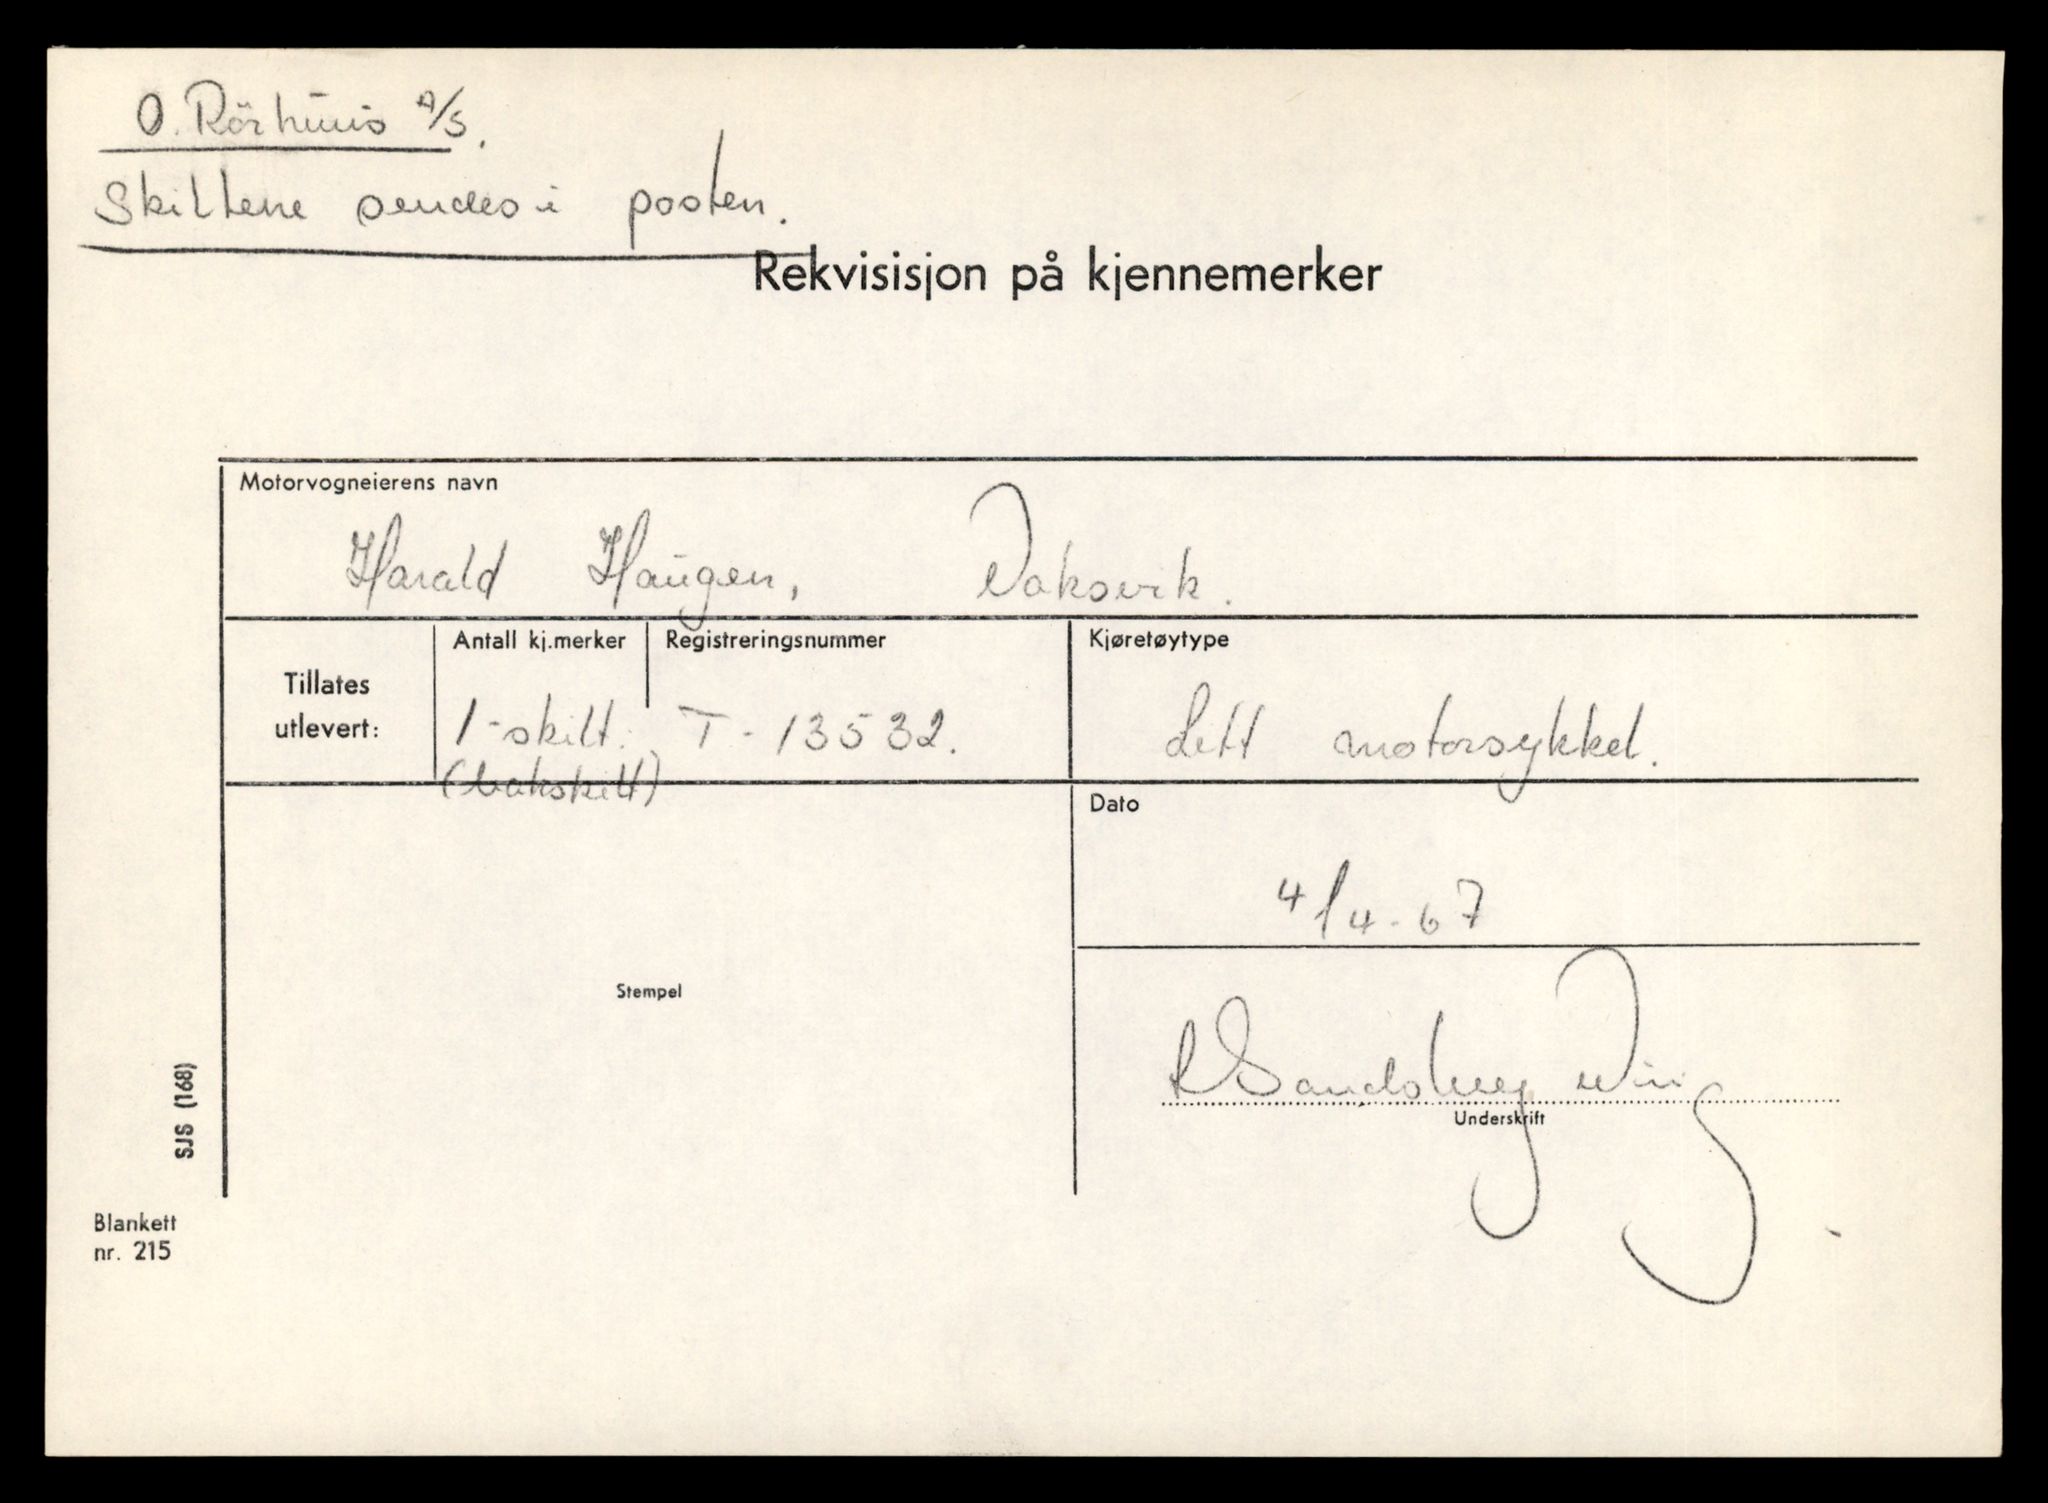 O. Rörhuus A/S.
Skiltene sendes i posten.
Rekvisisjon på kjennemerker
Motorvogneierens navn
Harald Haugen, Vaksvik.
Tillates utlevert:
Antall kj.merker
1-skilt.
(bakskilt)
Registreringsnummer
T-13532.
Kjøretøytype
Lett motorsykkel.
Dato
4/4-67
Stempel
Underskrift
SJS (168)
Blankett
nr. 215